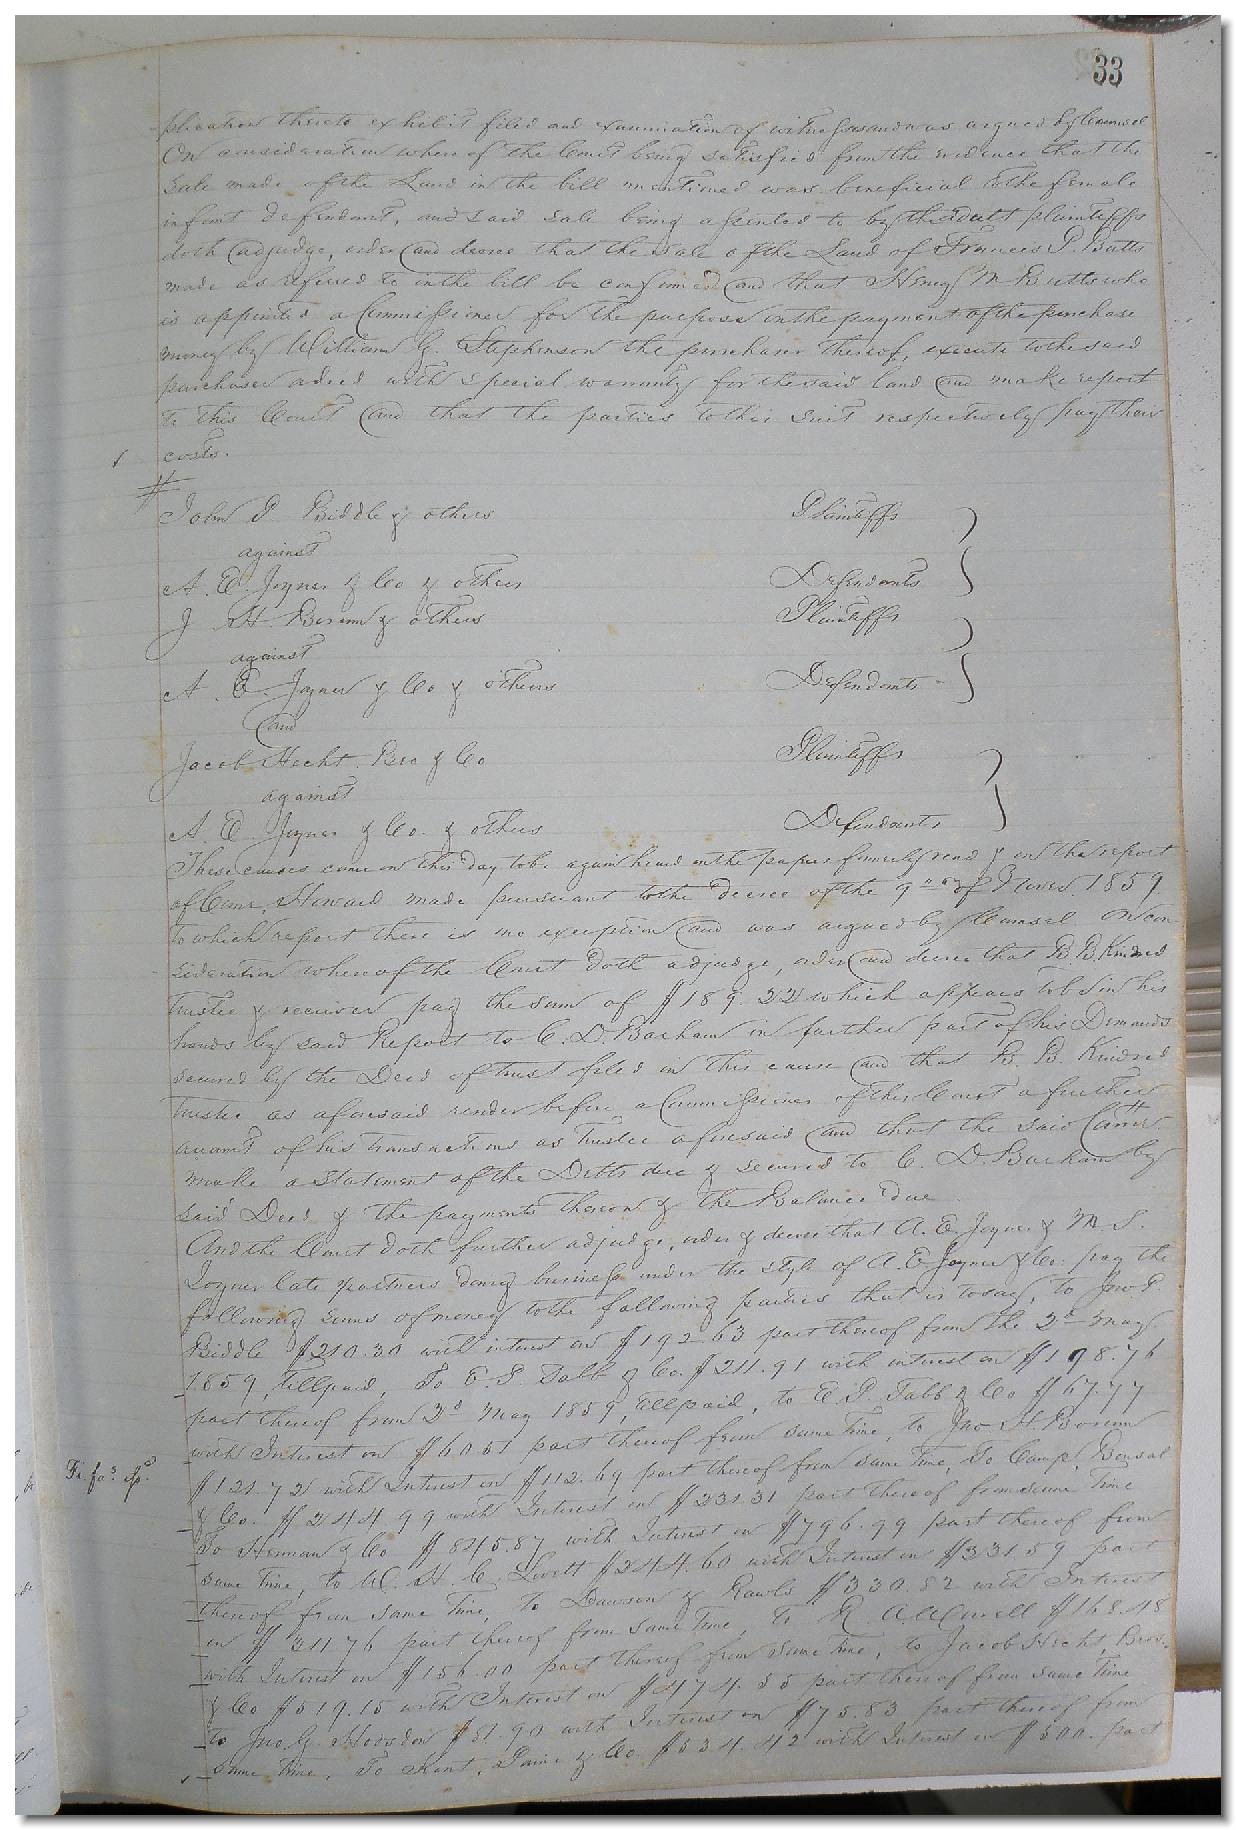 33
plication thereto exhibit filed and examination of witnesses and was argued by Counsel
On consideration where of the Court being satisfied from the evidence that the
sale made of the Land in the bill mentioned was beneficial to the female
infant defendant, and said sale being assented to by the adult plaintiffs
doth adjudge, order and decree that the sale of the Land of Francis P. Butts
made as referred to in the bill be confirmed and that Henry M Butts who
is appointed a Commissioner for the purpose on the payment of the purchase
money by William G. Stephenson the purchaser thereof, execute to the said
purchaser a deed with special warranty for the said land and make report
to this Court and that the parties to this suit respectively pay their
costs.
John P. Biddle & others Plaintiffs
against
A. E. Joyner & Co & others Defendants
J H. Borum & others Plaintiffs
against
A. E Joyner & Co & others Defendants
and
Jacob Hecht Bro & Co Plaintiffs
against
A. E. Joyner & Co. & others Defendants
These causes came on this day to be again heard on the papers formerly read & on the report
of Comr. Howard made pursuant to the decree of the 9th of Novr. 1859
to which report there is no exception and was argued by Counsel On con
sideration whereof the Court doth adjudge, order and decree that B. B. Kindred
trustee & receiver pay the sum of $189.22 which appears to be in his
hands by said Report to C. D. Barham in further part of his Demands
secured by the Deed of trust filed in this cause and that B. B. Kindred
trustee as aforesaid render before a Commissioner of this Court a further
account of his transactions as trustee aforesaid and that the said Comr.
make a Statement of the Debts due & secured to C. D. Barham by
said Deed & the payments thereon & the Balance due
And the Court doth further adjudge, order & decree that A. E Joyner & M S.
Joyner late partners doing business under the style of A. E Joyner & Co. pay the
following sums of money to the following parties that is to say, to Jno P.
Biddle $210.30 with interest on $192.63 part thereof from the 2d May
1859, till paid, To E. P. Tabb & Co. $211.91 with interest on $198.76
part thereof from 3d May 1859, till paid, to E. P. Tabb & Co $67.77
with Interest on $60.51 part thereof from same time, to Jno H. Borum
Fi. fa.
$121.72 with Interest on $112.69 part thereof from same time, To Camp, Bonsal
& Co. $244.99 with Interest on $231.31 part thereof from same time
To Herman & Co $845.87 with Interest on $796.99 part thereof from
same time, to W. H. C. Lovett $244.60 with Interest on $231.59 part
thereof from same time, to Dawson & Rawls $330.82 with Interest
on $311.76 part thereof from same time, to R. A. $168.48
with Interest on $156.00 part thereof from same time, to Jacob Hecht, Bro.
& Co $519.15 with Interest on $474.55 part thereof from same time
to Jno. G. $81.90 with Interest on $75.83 part thereof from
same time, To Kent, Paine & Co. $534.42 with Interest on $500. part